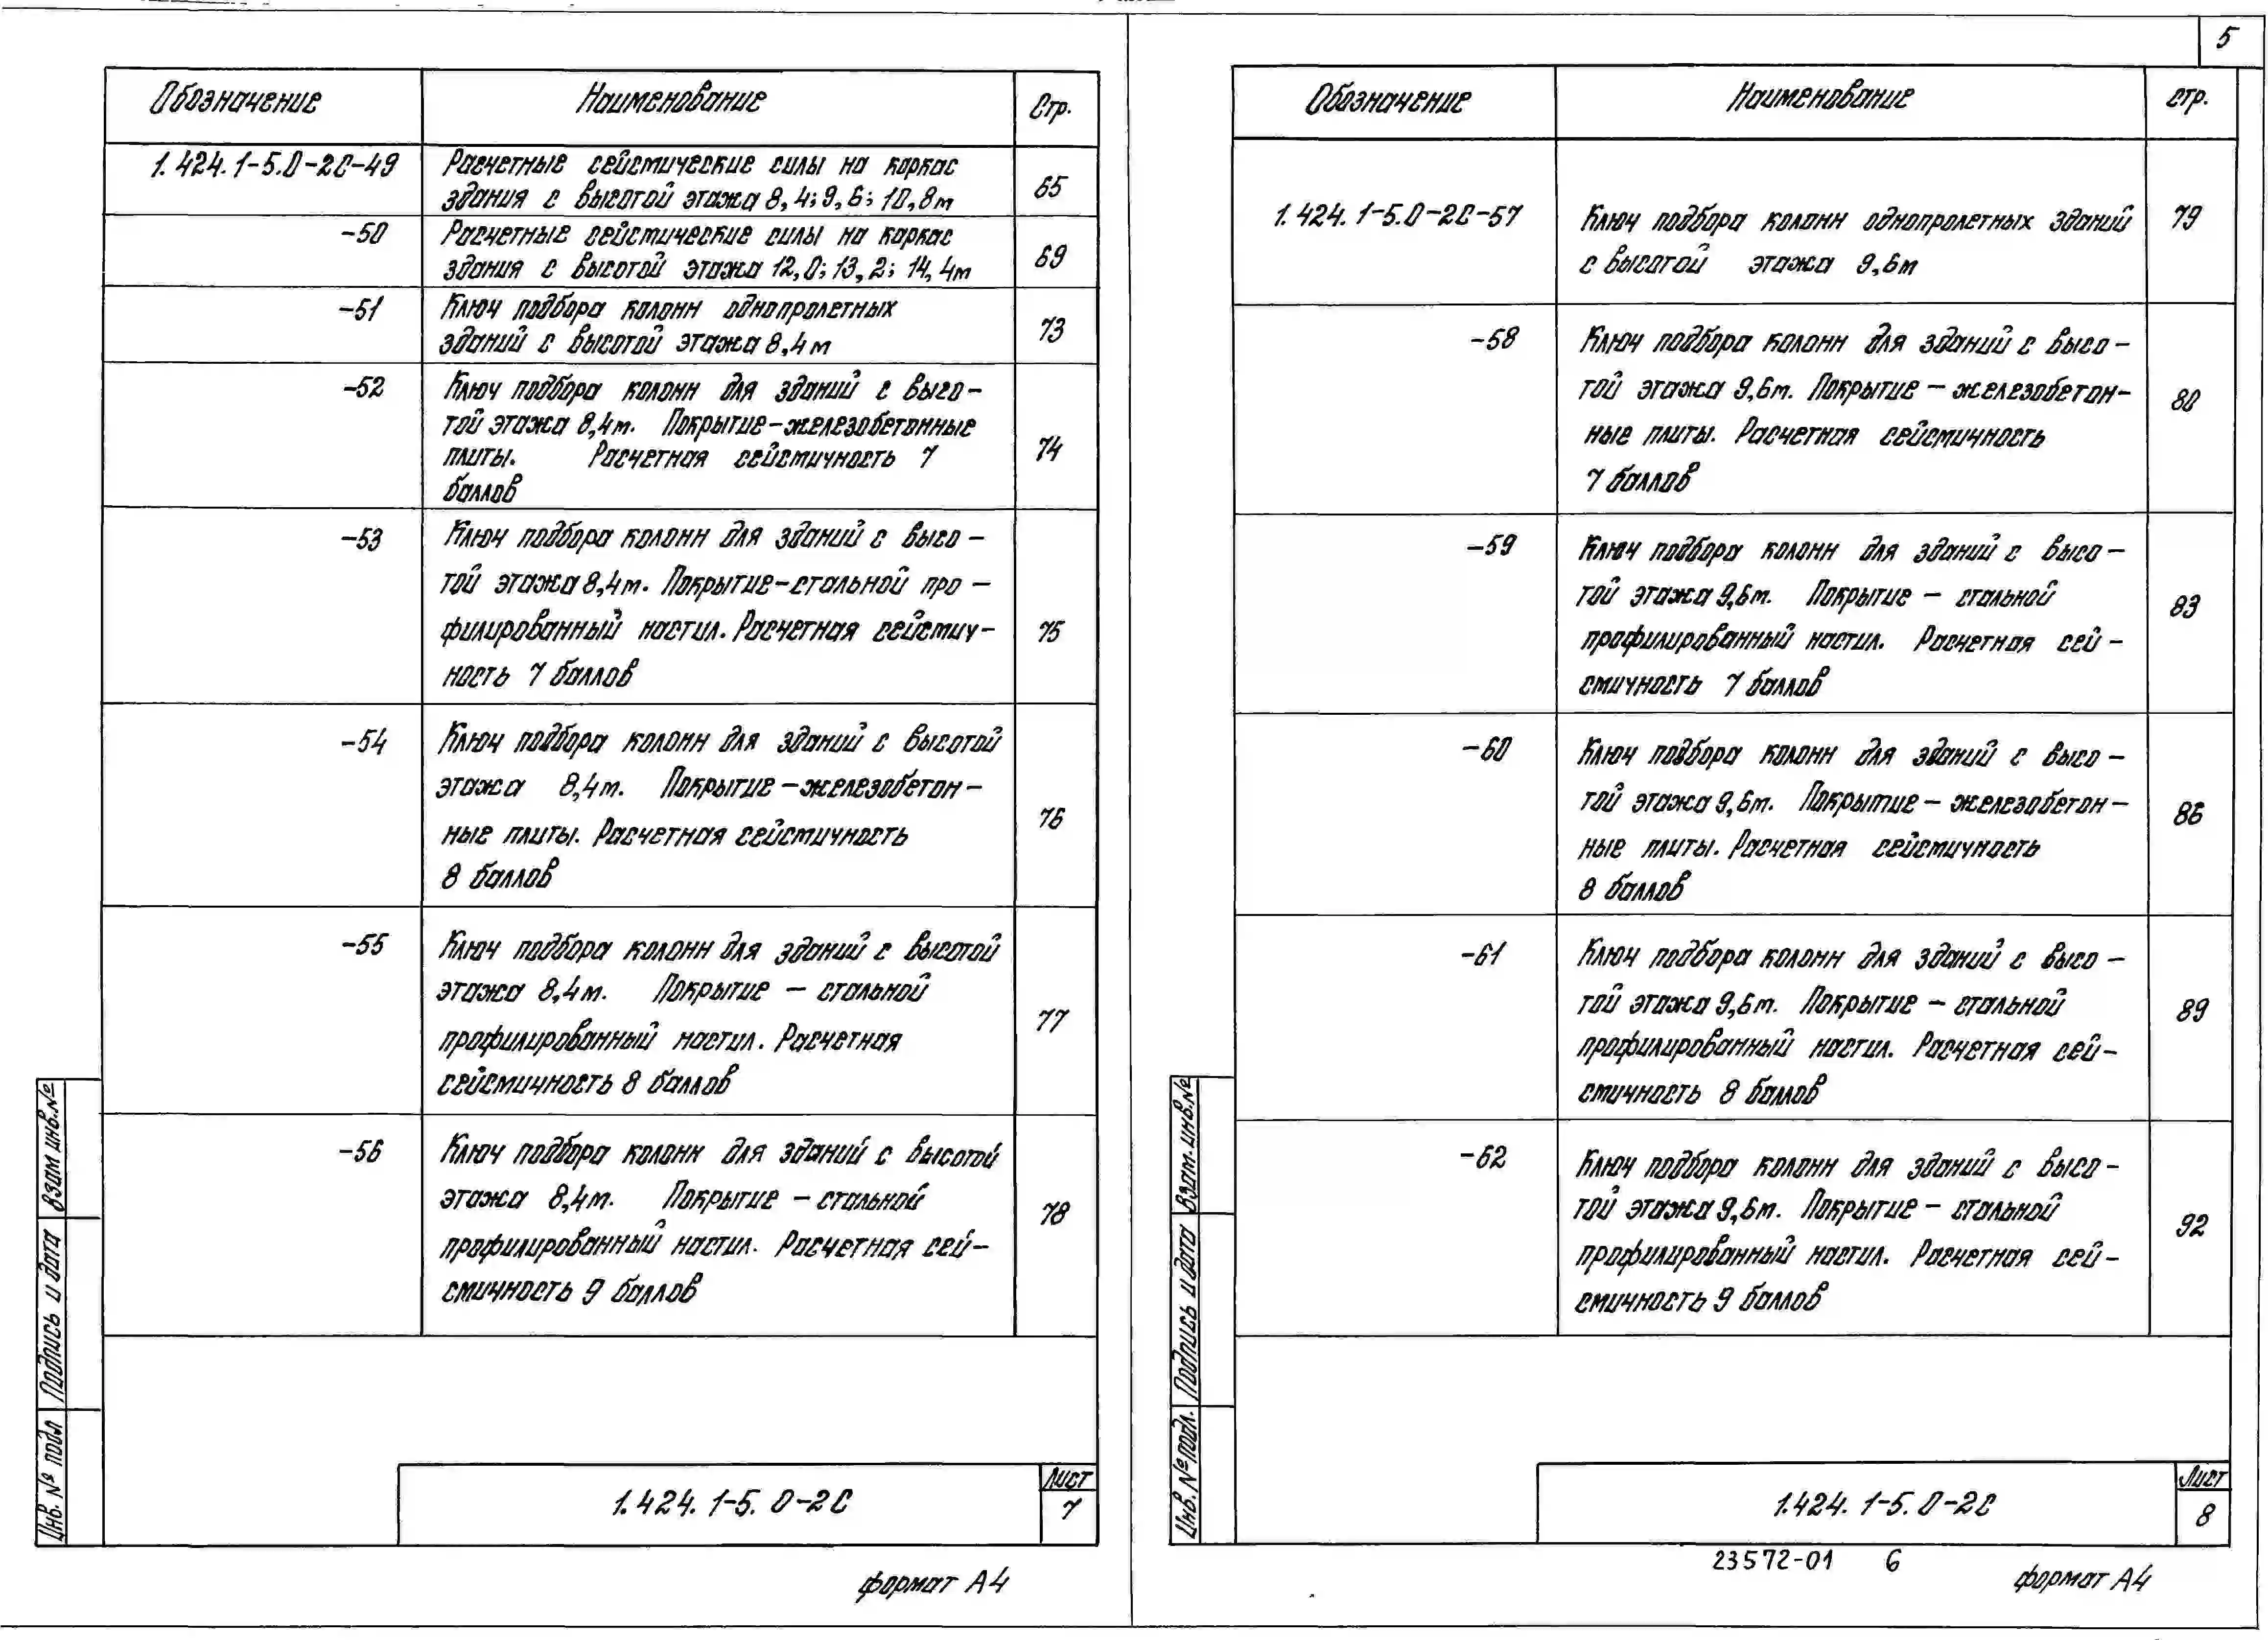 Обозначение Наименование Стр.
1.424.1-5.0-2С-49 Расчетные сейсмические силы на каркас
здания с высотой этажа 8,4; 9,6; 10,8м 65
-50 Расчетные сейсмические силы на каркас
здания с высотой этажа 12,0; 13,2; 14,4м 69
-51 Ключ подбора колонн однопролетных
зданий с высотой этажа 8,4м 73
-52 Ключ подбора колонн для зданий с высо-
той этажа 8,4м. Покрытие-железобетонные
плиты. Расчетная сейсмичность 7 74
баллов
-53 Ключ подбора колонн для зданий с высо-
той этажа 8,4м. Покрытие-стальной про-
филированный настил. Расчетная сейсмич- 75
ность 7 баллов
-54 Ключ подбора колонн для зданий с высотой
этажа 8,4м. Покрытие-железобетон-
ные плиты. Расчетная сейсмичность 76
8 баллов
-55 Ключ подбора колонн для зданий с высотой
этажа 8,4м. Покрытие - стальной
профилированный настил. Расчетная 77
сейсмичность 8 баллов
-56 Ключ подбора колонн для зданий с высотой
этажа 8,4м. Покрытие - стальной
профилированный настил. Расчетная сей- 78
смичность 9 баллов
Взам инв.№
Подпись и дата
Инв. № подл
1.424.1-5.0-2С
Лист
7
формат А4
5
Обозначение Наименование стр.
1.424.1-5.0-2С-57 Ключ подбора колонн однопролетных зданий 79
с высотой этажа 9,6м
-58 Ключ подбора колонн для зданий с высо-
той этажа 9,6м. Покрытие - железобетон- 80
ные плиты. Расчетная сейсмичность
7 баллов
-59 Ключ подбора колонн для зданий с высо-
той этажа 9,6м. Покрытие - стальной 83
профилированный настил. Расчетная сей-
смичность 7 баллов
-60 Ключ подбора колонн для зданий с высо-
той этажа 9,6м. Покрытие - железобетон- 86
ные плиты. Расчетная сейсмичность
8 баллов
-61 Ключ подбора колонн для зданий с высо-
той этажа 9,6м. Покрытие - стальной 89
профилированный настил. Расчетная сей-
смичность 8 баллов
-62 Ключ подбора колонн для зданий с высо-
той этажа 9,6м. Покрытие - стальной 92
профилированный настил. Расчетная сей-
смичность 9 баллов
Взам. инв.№
Подпись и дата
Инв. № подл.
1.424.1-5.0-2С
Лист
8
23572-01 6
формат А4